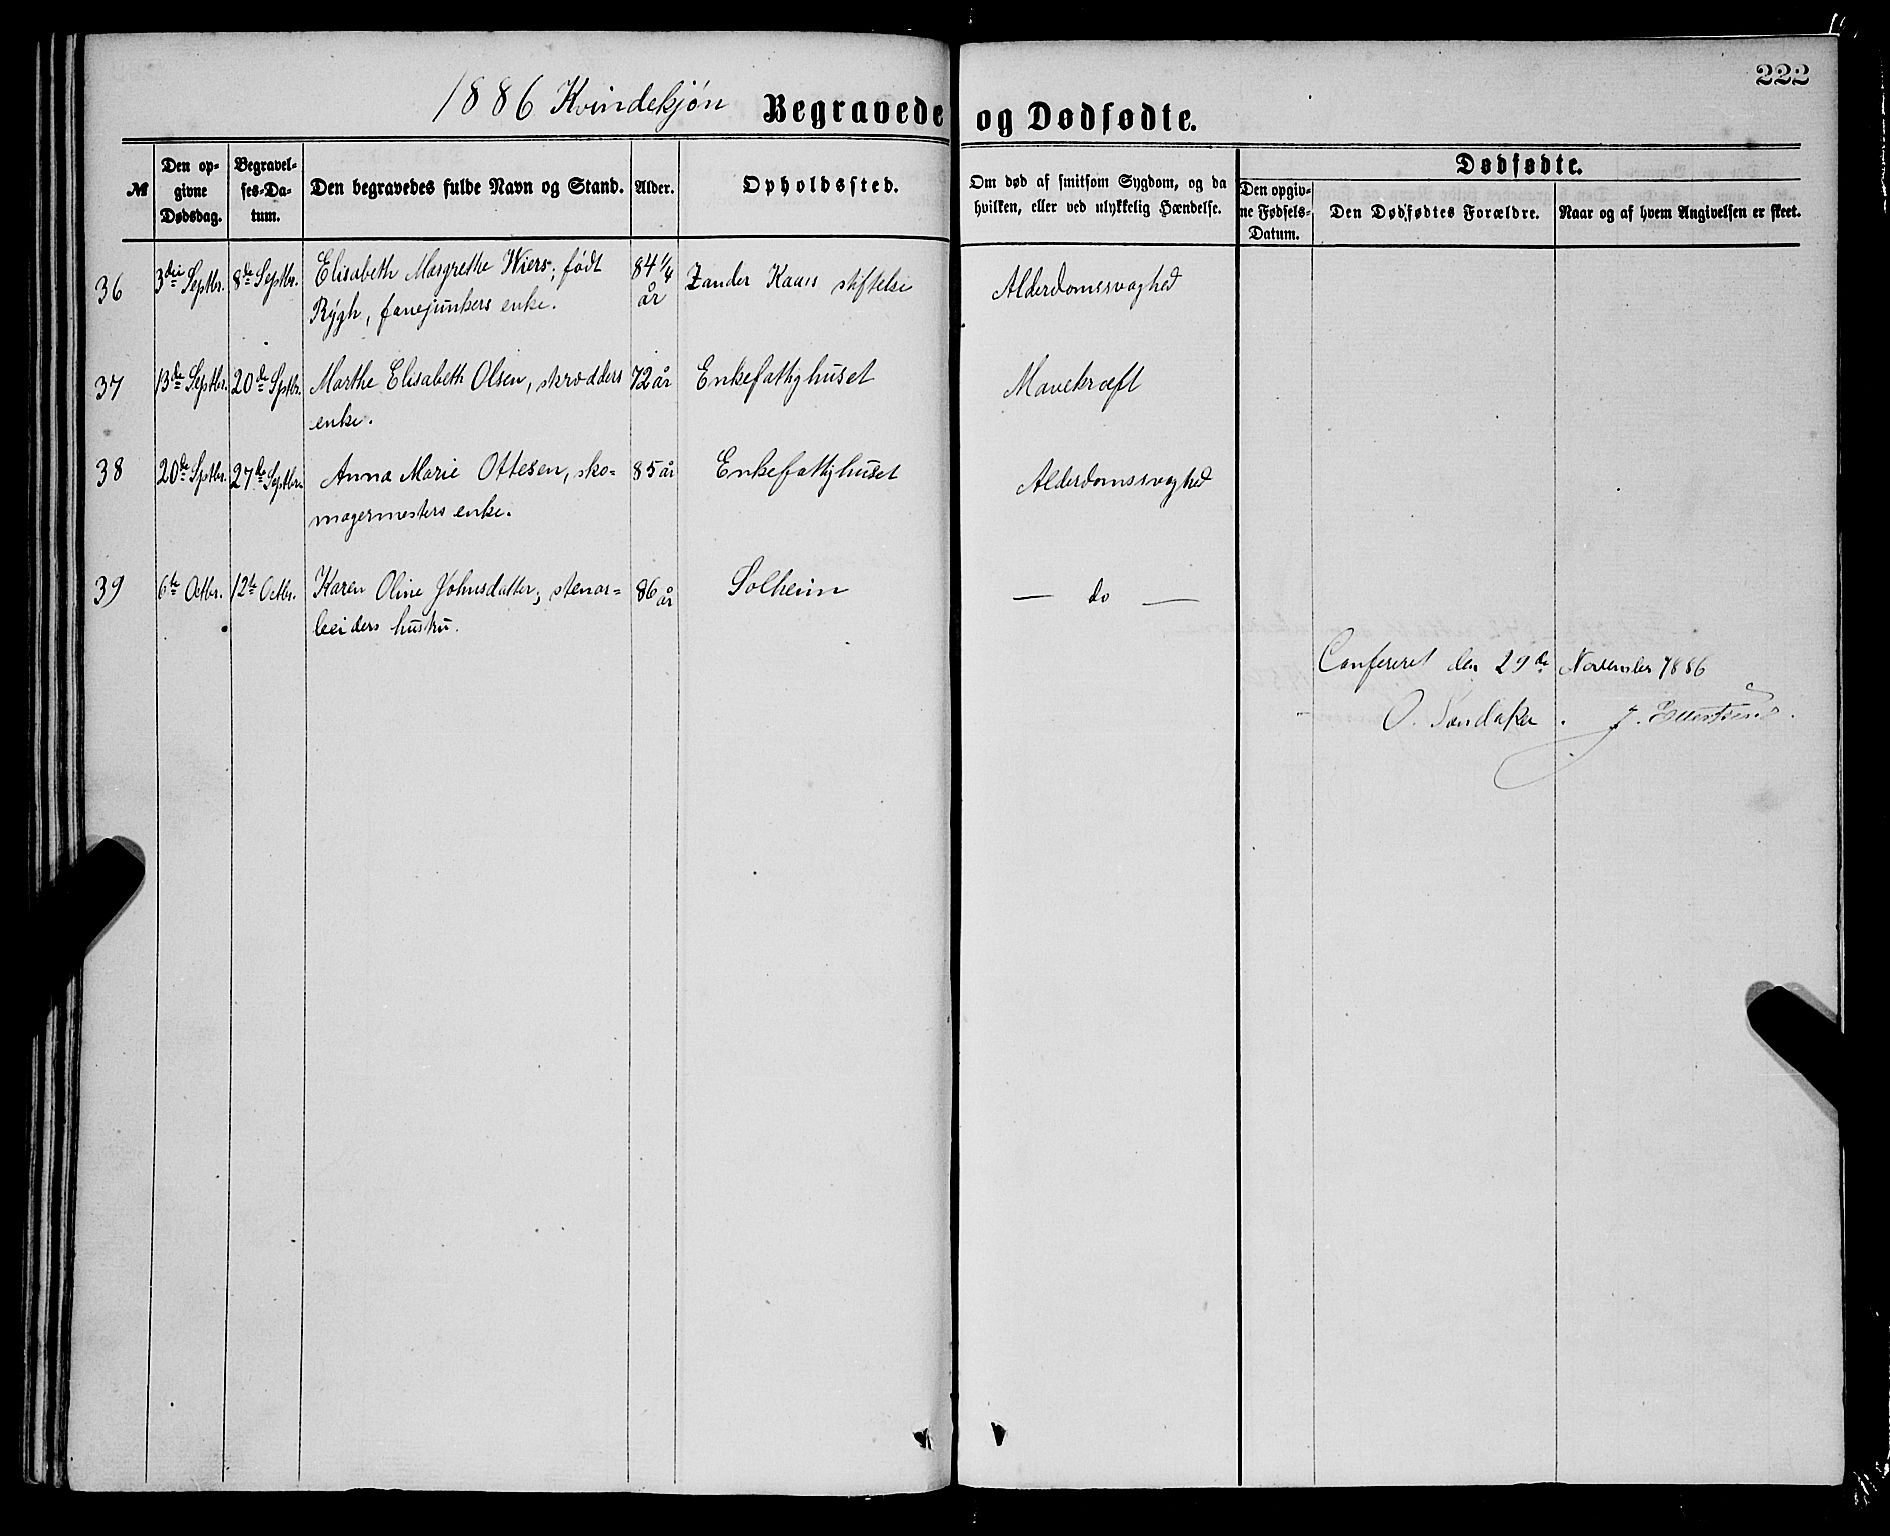 222
1886 Kvindekjøn Begravede og Dødfødte.
№ | Den opgivne Dødsdag. | Begravelses-Datum. | Den begravedes fulde Navn og Stand. | Alder. | Opholdssted. | Om død af smitsom Sygdom, og da hvilken, eller ved ulykkelig Hændelse. | Dødfødte. | Den opgivne Fødsels-Datum. | Den Dødfødtes Forældre. | Naar og af hvem Angivelsen er skeet.
36 3die Septbr. 8de Septbr. Elisabeth Margrethe Wiers; født 84 1/4 Zander Kaaes stiftelse Alderdomssvaghed
Rÿgh, fanejunkers enke. år
37 13de Septbr. 20de Sptbr. Marthe Elisabeth Olsen, skrædders 72 år Enkefattighuset Mavekræft
enke.
38 20de Sptbr. 27de Septbr. Anna Marie Ottesen, sko- 85 år Enkefattighuset Alderdomssvaghed
magermesters enke.
39 6te Octbr. 12te Octbr. Karen Oline Johnsdatter; stenar- 86 år Solheim — do —
beiders hustru.
Confereret den 29de November 1886
O. Sandaker. J.